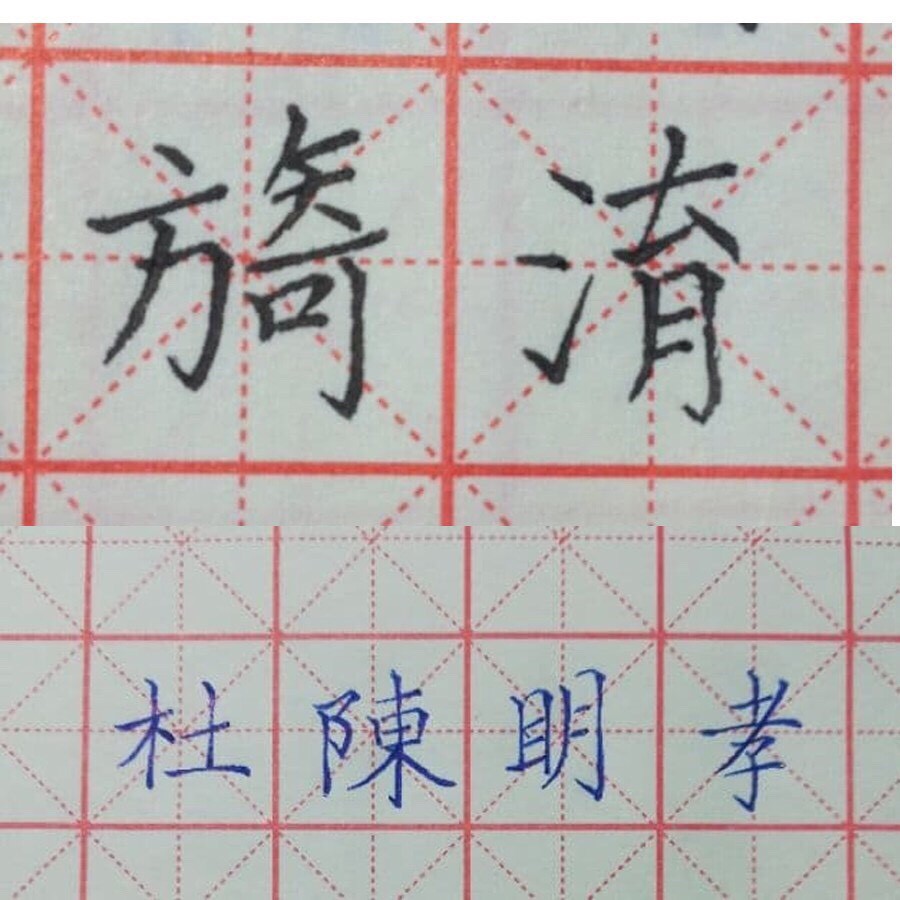 旖淯
杜陳明孝